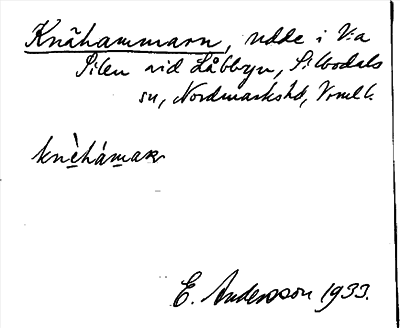 Knähammarn, udde i V:a
Silen vid Låbbyn, Silbodals
sn, Nordmarkshd, Vrml.
knèhámar
E. Andersson 1933.